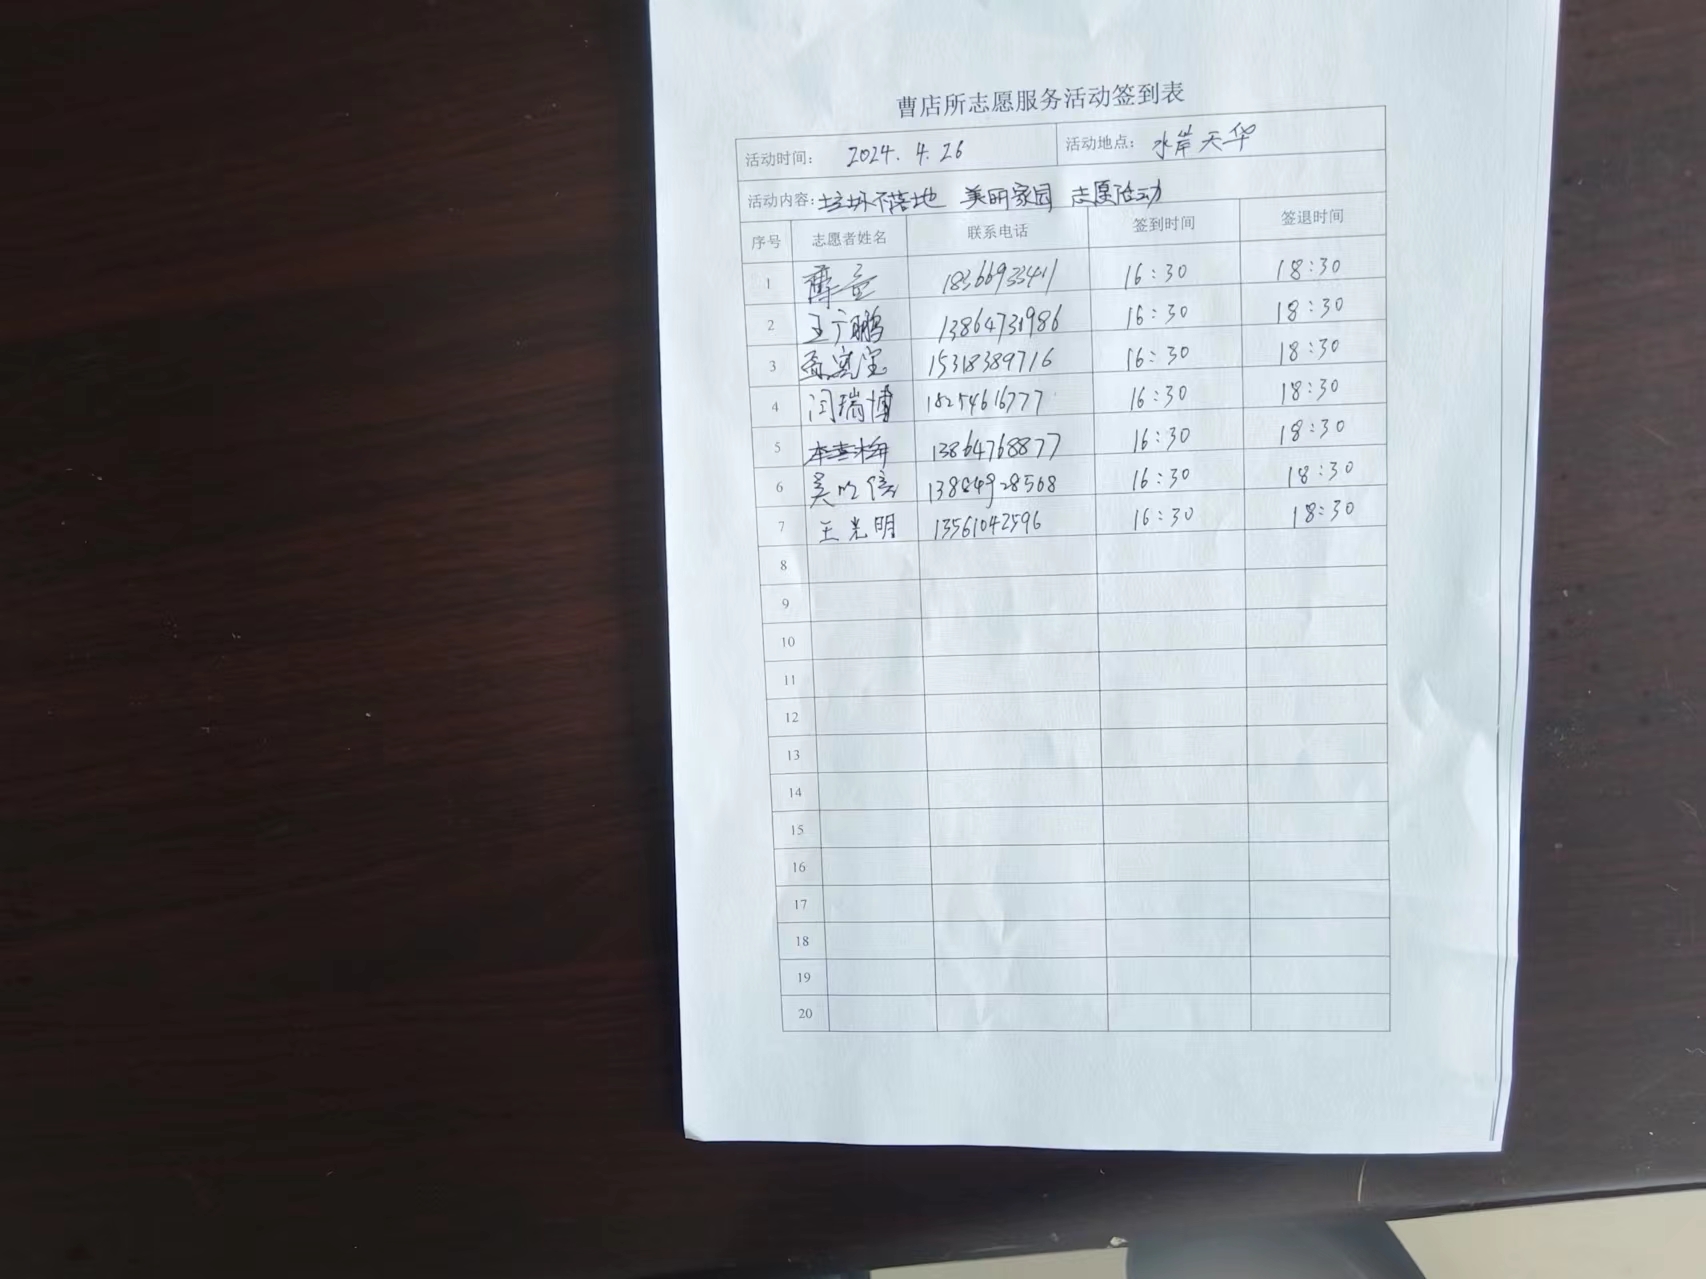 曹店所志愿服务活动签到表
活动时间: 2024.4.26 活动地点: 水岸天华
活动内容: 垃圾不落地 美丽家园 志愿活动
序号 志愿者姓名 联系电话 签到时间 签退时间
1 18366933411 16:30 18:30
2 王广鹏 13864731986 16:30 18:30
3 15318389716 16:30 18:30
4 闫瑞博 18254616777 16:30 18:30
5 13864768877 16:30 18:30
6 16:30 18:30
7 王光明 13561042596 16:30 18:30
8
9
10
11
12
13
14
15
16
17
18
19
20